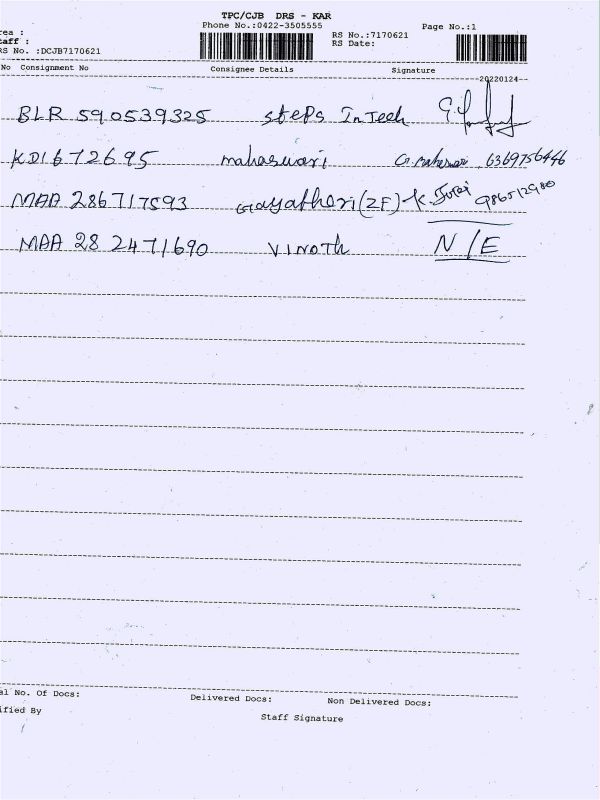 TPC/CJB DRS - KAR
Phone No.:0422-3505555
Page No.:1
rea :
RS No.:7170621
taff :
RS Date:
RS No. :DCJB7170621
No Consignment No Consignee Details Signature
20220124
BLR 590539325 Steps InTech
KDI672695 mahaswari G. mahaswari, 6369756446
MAA 286717593 Gayatheri (ZF)
MAA 282471690 VINOTH N/E
al No. Of Docs: Delivered Docs: Non Delivered Docs:
ified By
Staff Signature